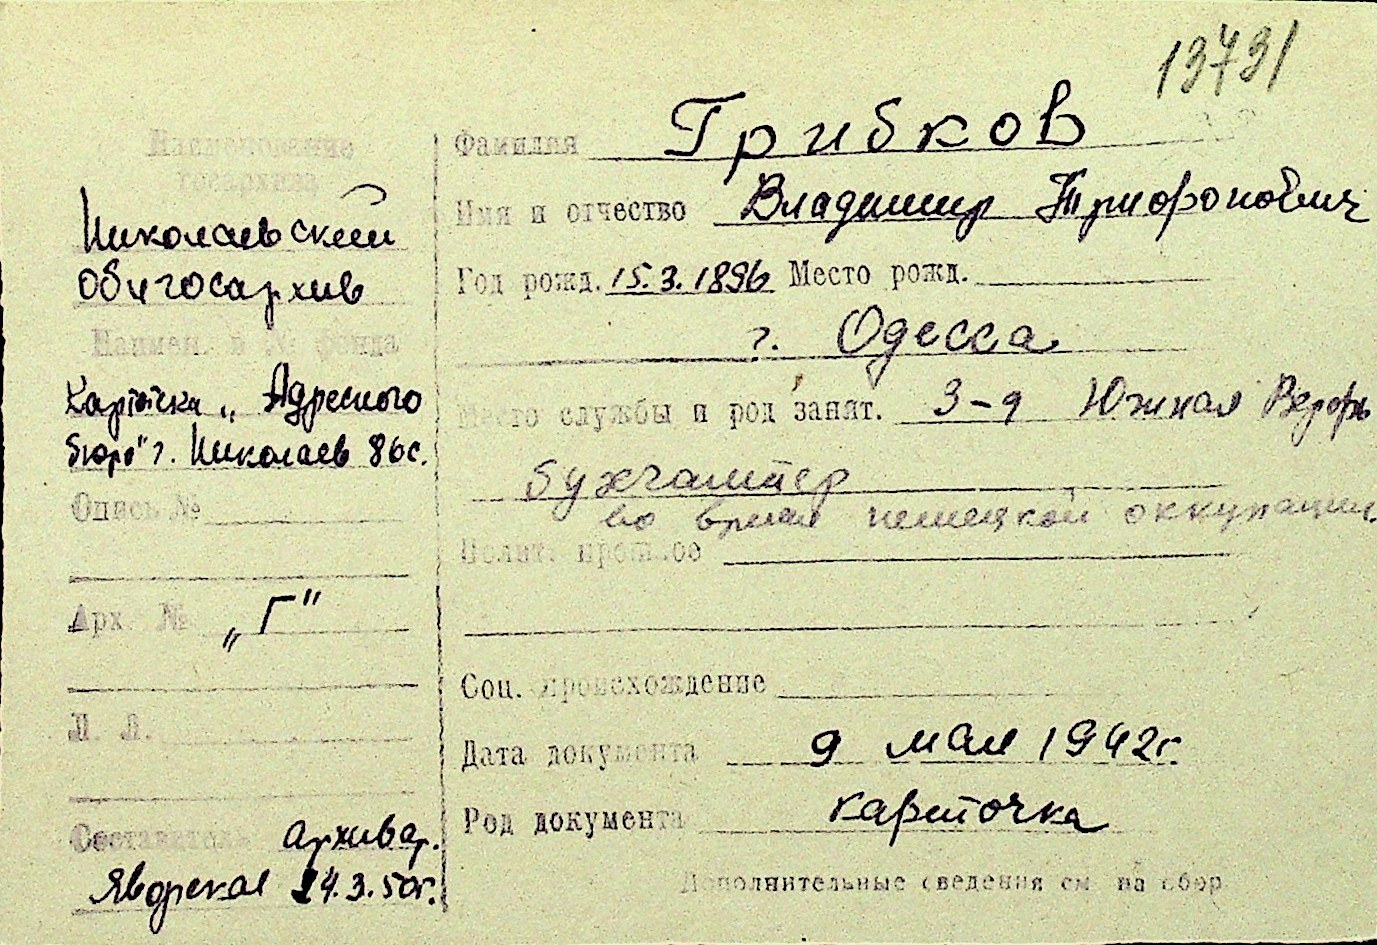 13731
Наименование
госархива
Николаевский
облгосархив
Наимен. и № фонда
Карточка „Адресного
бюро" г. Николаев 86с.
Опись №
Арх. № „Г"
Л. Л.
Составитель архивар.
Яворская 24.3.50г.
Фамилия Грибков
Имя и отчество Владимир Трифонович
Год рожд. 15.3.1896 Место рожд.
г. Одесса
Место службы и род занят. 3-д Южная Верфь
бухгалтер
во время немецкой оккупации
Полит. прошлое
Соц. происхождение
Дата документа 9 мая 1942г.
Род документа карточка
Дополнительные сведения см. на обор.